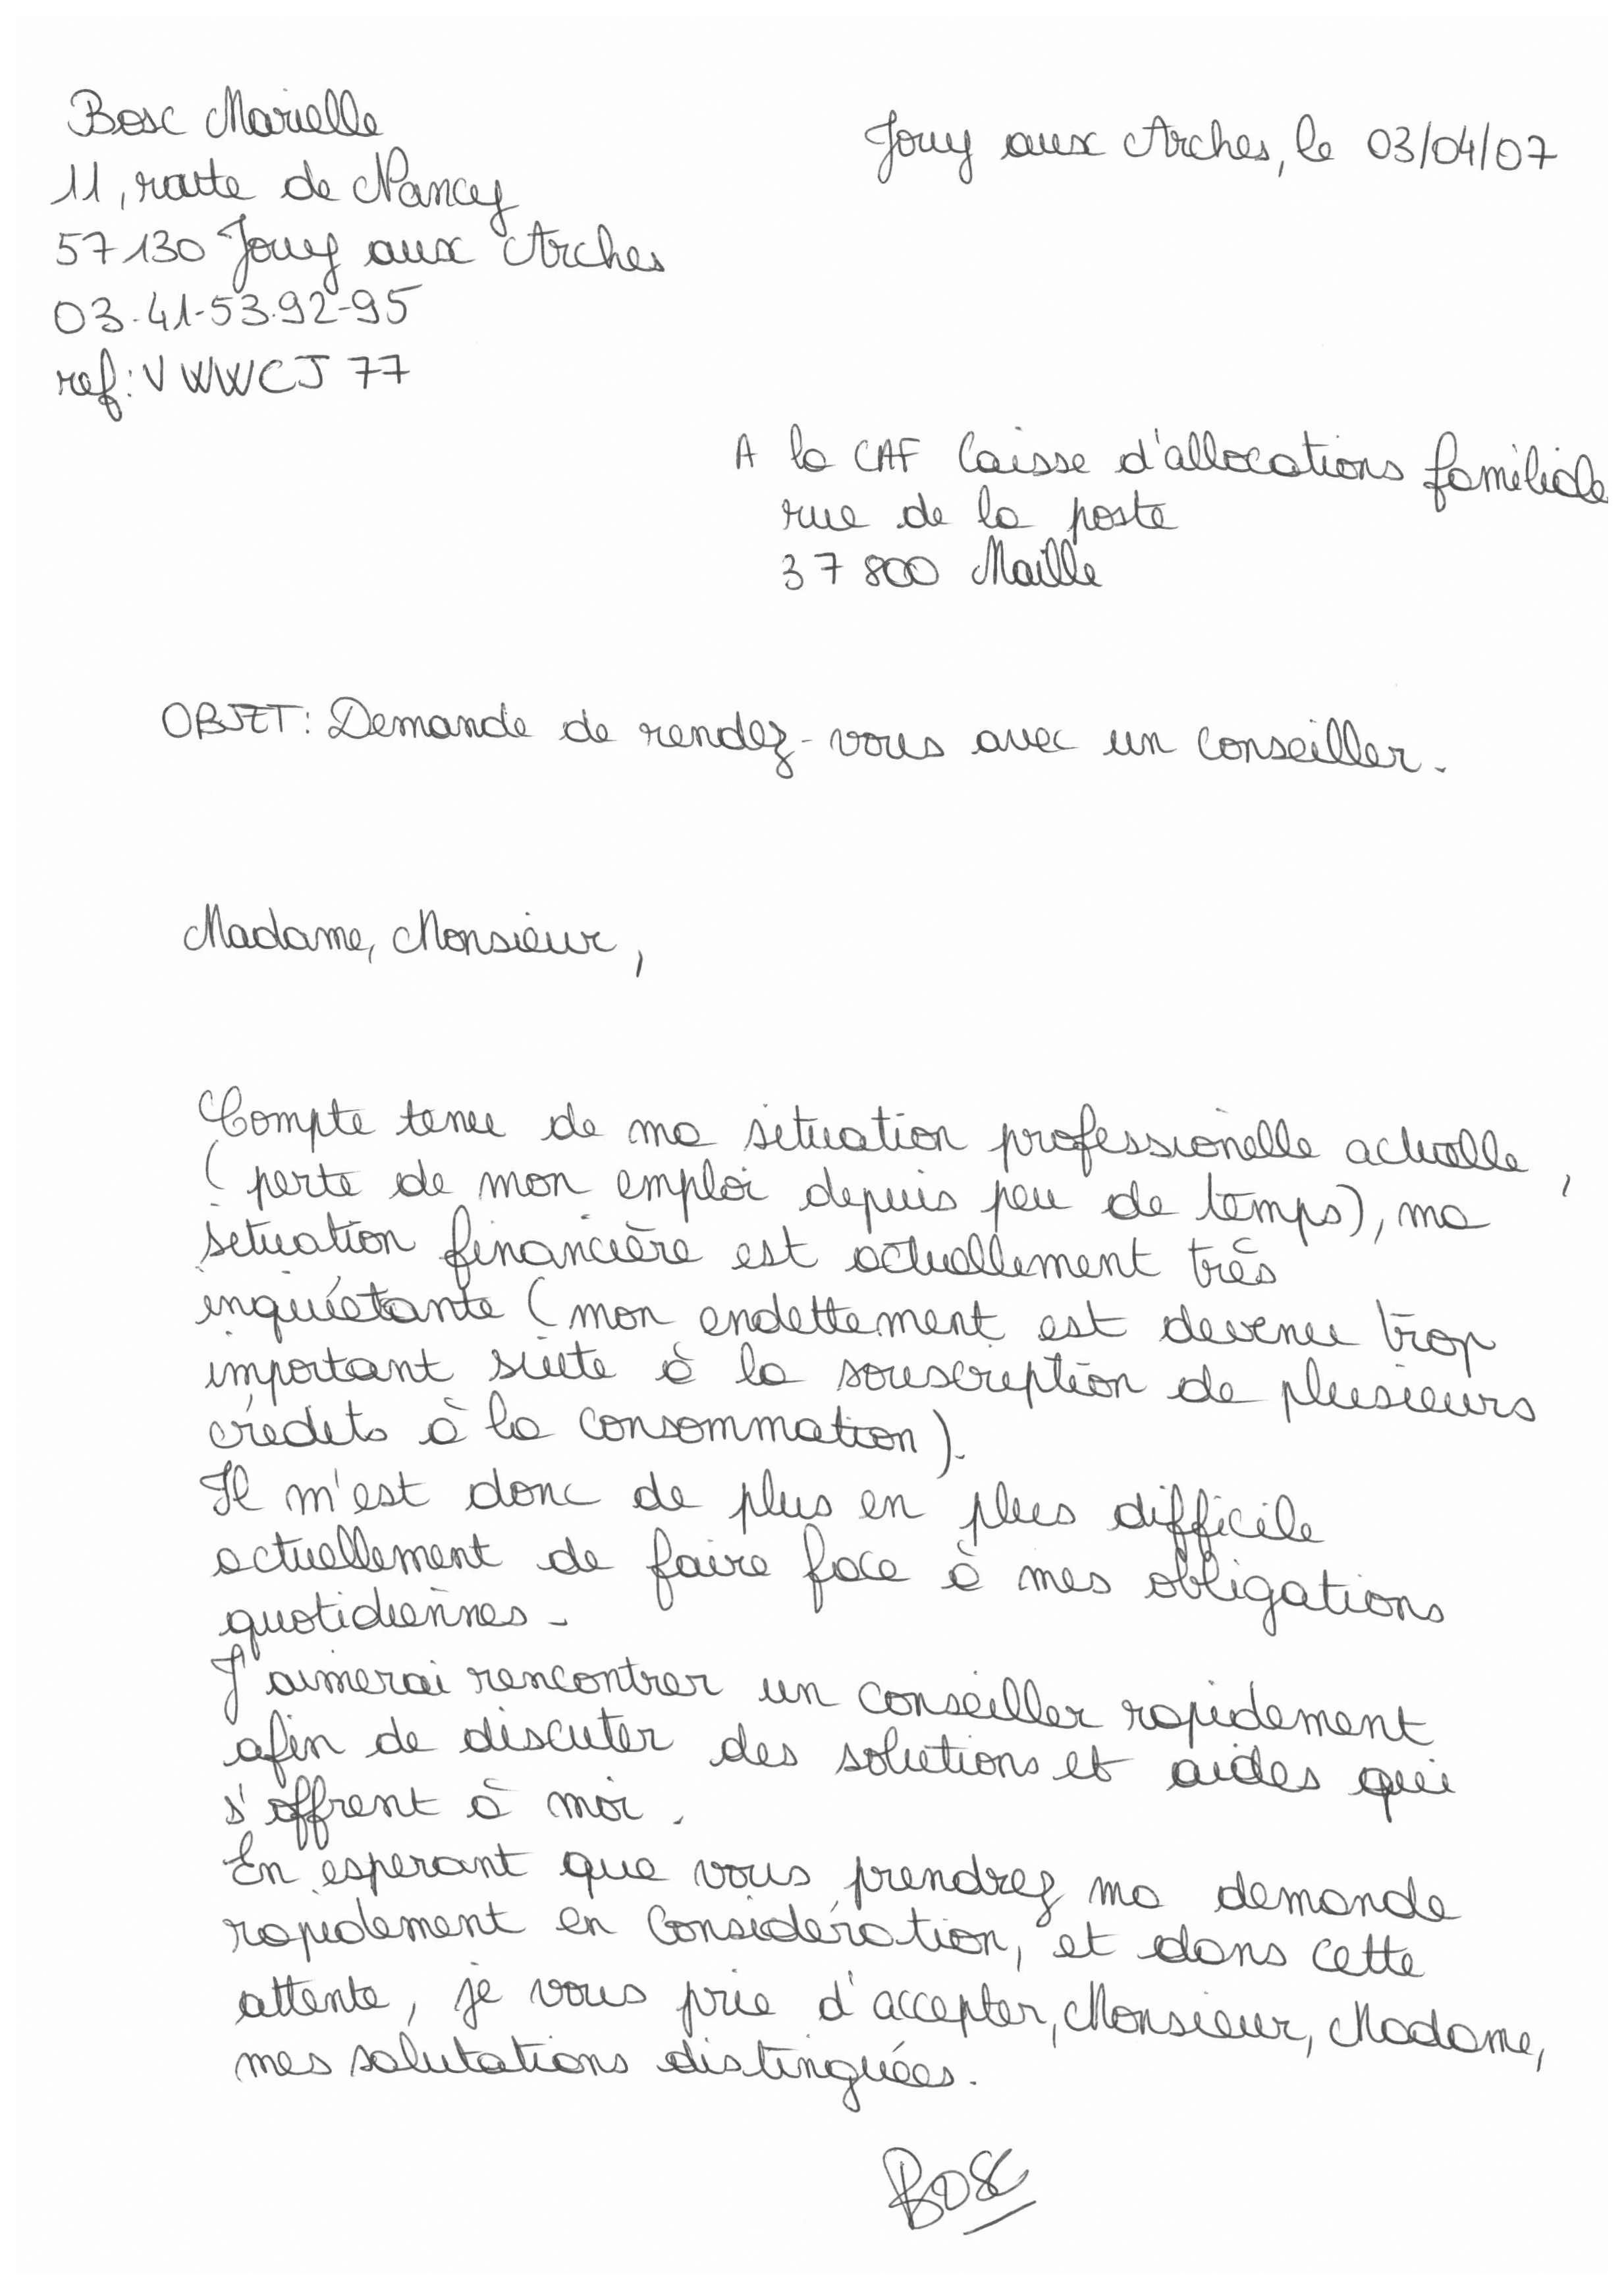 Bosc Marielle
11, route de Nancy
57130 Jouy aux Arches
03-41-53.92-95
ref: VWWCJ 77
Jouy aux Arches, le 03/04/07
A la CAF Caisse d'allocations familiale
rue de la poste
37800 Maille
OBJET: Demande de rendez-vous avec un conseiller.
Madame, Monsieur,
Compte tenu de ma situation professionelle actuelle,
(perte de mon emploi depuis peu de temps), ma
situation financière est actuellement très
inquiétante (mon endettement est devenu trop
important suite à la souscription de plusieurs
crédits à la consommation).
Il m'est donc de plus en plus difficile
actuellement de faire face à mes obligations
quotidiennes.
J'aimerai rencontrer un conseiller rapidement
afin de discuter des solutions et aides qui
s'offrent à moi.
En esperant que vous prendrez ma demande
rapidement en considération, et dans cette
attente, je vous prie d'accepter, Monsieur, Madame,
mes salutations distinguées.
BOSC